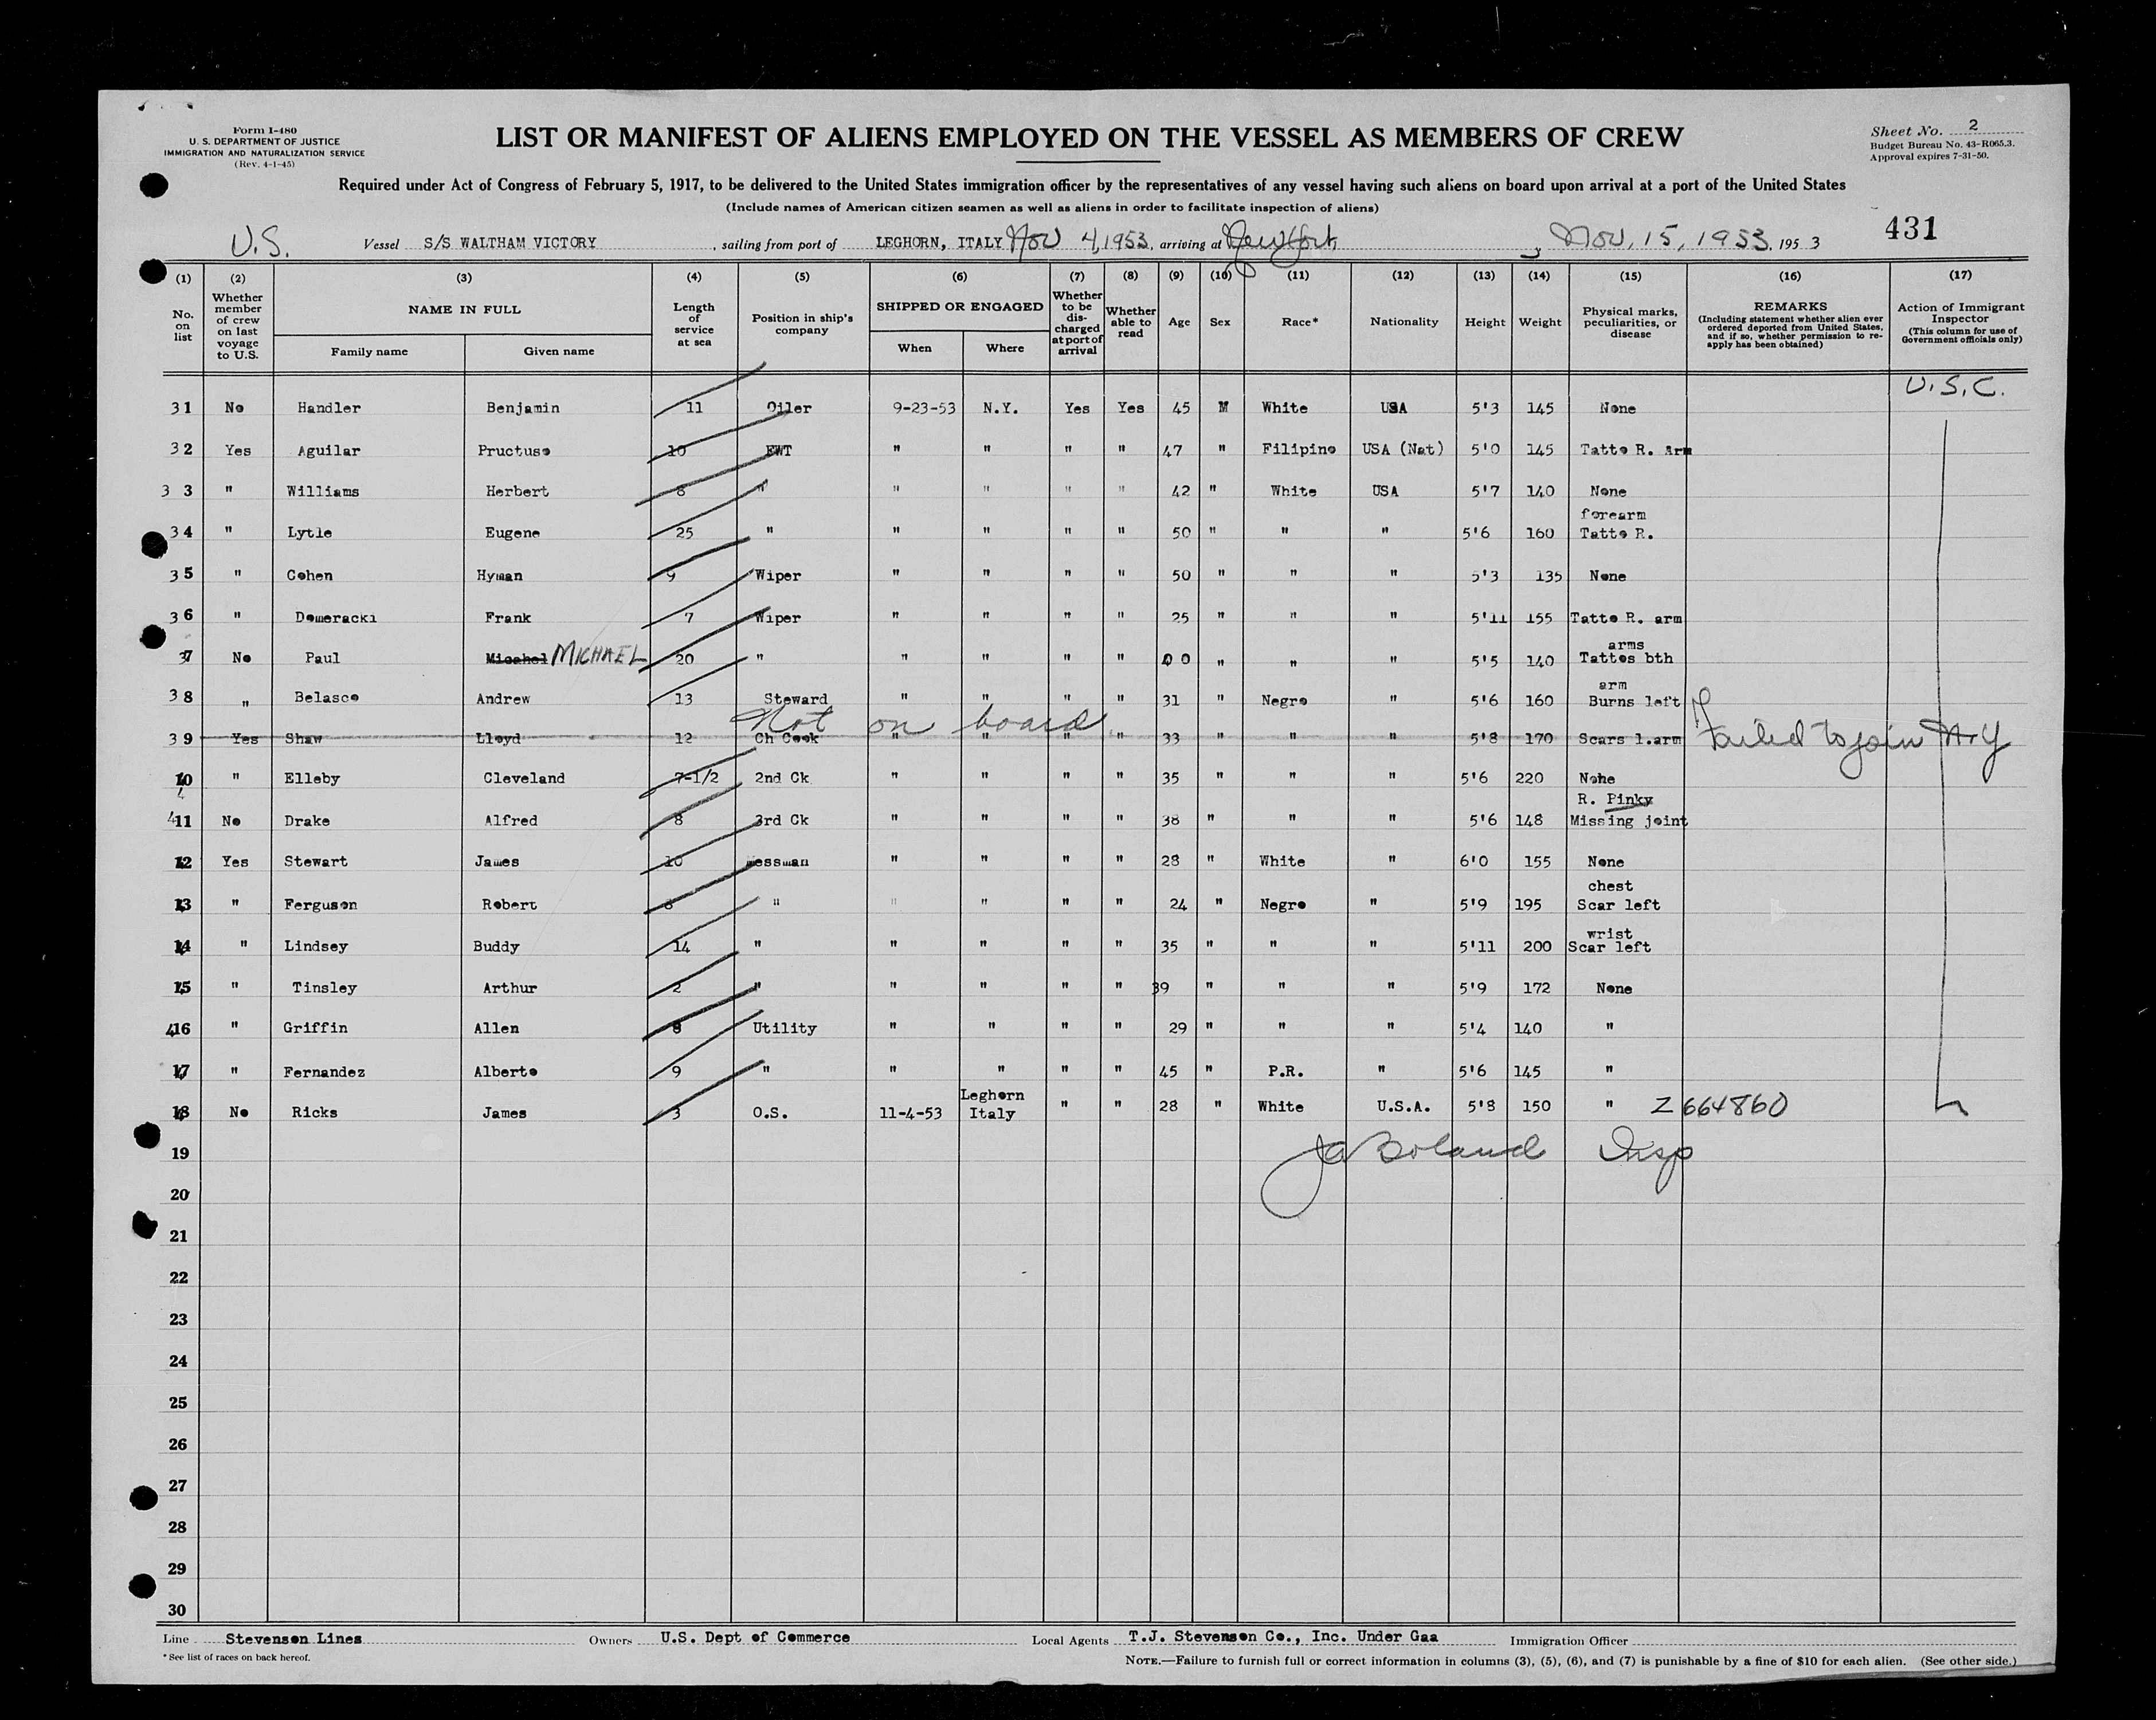 Form I-480
U. S. DEPARTMENT OF JUSTICE
IMMIGRATION AND NATURALIZATION SERVICE
(Rev. 4-1-45)
LIST OR MANIFEST OF ALIENS EMPLOYED ON THE VESSEL AS MEMBERS OF CREW
Sheet No. 2
Budget Bureau No. 43-R065.3.
Approval expires 7-31-50.
Required under Act of Congress of February 5, 1917, to be delivered to the United States immigration officer by the representatives of any vessel having such aliens on board upon arrival at a port of the United States
(Include names of American citizen seamen as well as aliens in order to facilitate inspection of aliens)
431
U.S. Vessel S/S WALTHAM VICTORY, sailing from port of LEGHORN, ITALY Nov 4, 1953, arriving at New York, Nov, 15, 1953, 195 3
(1) (2) (3) (4) (5) (6) (7) (8) (9) (10) (11) (12) (13) (14) (15) (16) (17)
No. on list
Whether member of crew on last voyage to U.S.
NAME IN FULL
Family name
Given name
Length of service at sea
Position in ship's company
SHIPPED OR ENGAGED
When
Where
Whether to be discharged at port of arrival
Whether able to read
Age
Sex
Race*
Nationality
Height
Weight
Physical marks, peculiarities, or disease
REMARKS
(Including statement whether alien ever ordered deported from United States, and if so, whether permission to re-apply has been obtained)
Action of Immigrant Inspector
(This column for use of Government officials only)
U.S.C.
31 No Handler Benjamin 11 Oiler 9-23-53 N.Y. Yes Yes 45 M White USA 5'3 145 None
32 Yes Aguilar Pructuso 10 FWT " " " " 47 " Filipino USA (Nat) 5'0 145 Tatto R. Arm
33 " Williams Herbert 8 " " " " " 42 " White USA 5'7 140 None
forearm
34 " Lytle Eugene 25 " " " " " 50 " " " 5'6 160 Tatto R.
35 " Cohen Hyman 9 Wiper " " " " 50 " " " 5'3 135 None
36 " Domeracki Frank 7 Wiper " " " " 25 " " " 5'11 155 Tatto R. arm
arms
37 No Paul Micahel MICHAEL 20 " " " " " " " " 5'5 140 Tattos bth
arm
38 " Belasco Andrew 13 Steward " " " " 31 " Negro " 5'6 160 Burns left
Not on board
39 Yes Shaw Lloyd 12 Ch Cook " " " " 33 " " " 5'8 170 Scars l.arm Failed to join N.Y
40 " Elleby Cleveland 7-1/2 2nd Ck " " " " 35 " " " 5'6 220 None
R. Pinky
411 No Drake Alfred 8 3rd Ck " " " " 38 " " " 5'6 148 Missing joint
12 Yes Stewart James 10 messman " " " " 28 " White " 6'0 155 None
chest
13 " Ferguson Robert 8 " " " " " 24 " Negro " 5'9 195 Scar left
wrist
14 " Lindsey Buddy 14 " " " " " 35 " " " 5'11 200 Scar left
15 " Tinsley Arthur 2 " " " " " 39 " " " 5'9 172 None
416 " Griffin Allen 8 Utility " " " " 29 " " " 5'4 140 "
17 " Fernandez Alberto 9 " " " " " 45 " P.R. " 5'6 145 "
Leghorn
18 No Ricks James 3 O.S. 11-4-53 Italy " " 28 " White U.S.A. 5'8 150 " Z 664860
Boland Insp
19
20
21
22
23
24
25
26
27
28
29
30
Line Stevenson Lines Owners U.S. Dept of Commerce Local Agents T.J. Stevenson Co., Inc. Under Gaa Immigration Officer
*See list of races on back hereof.
NOTE.—Failure to furnish full or correct information in columns (3), (5), (6), and (7) is punishable by a fine of $10 for each alien. (See other side.)